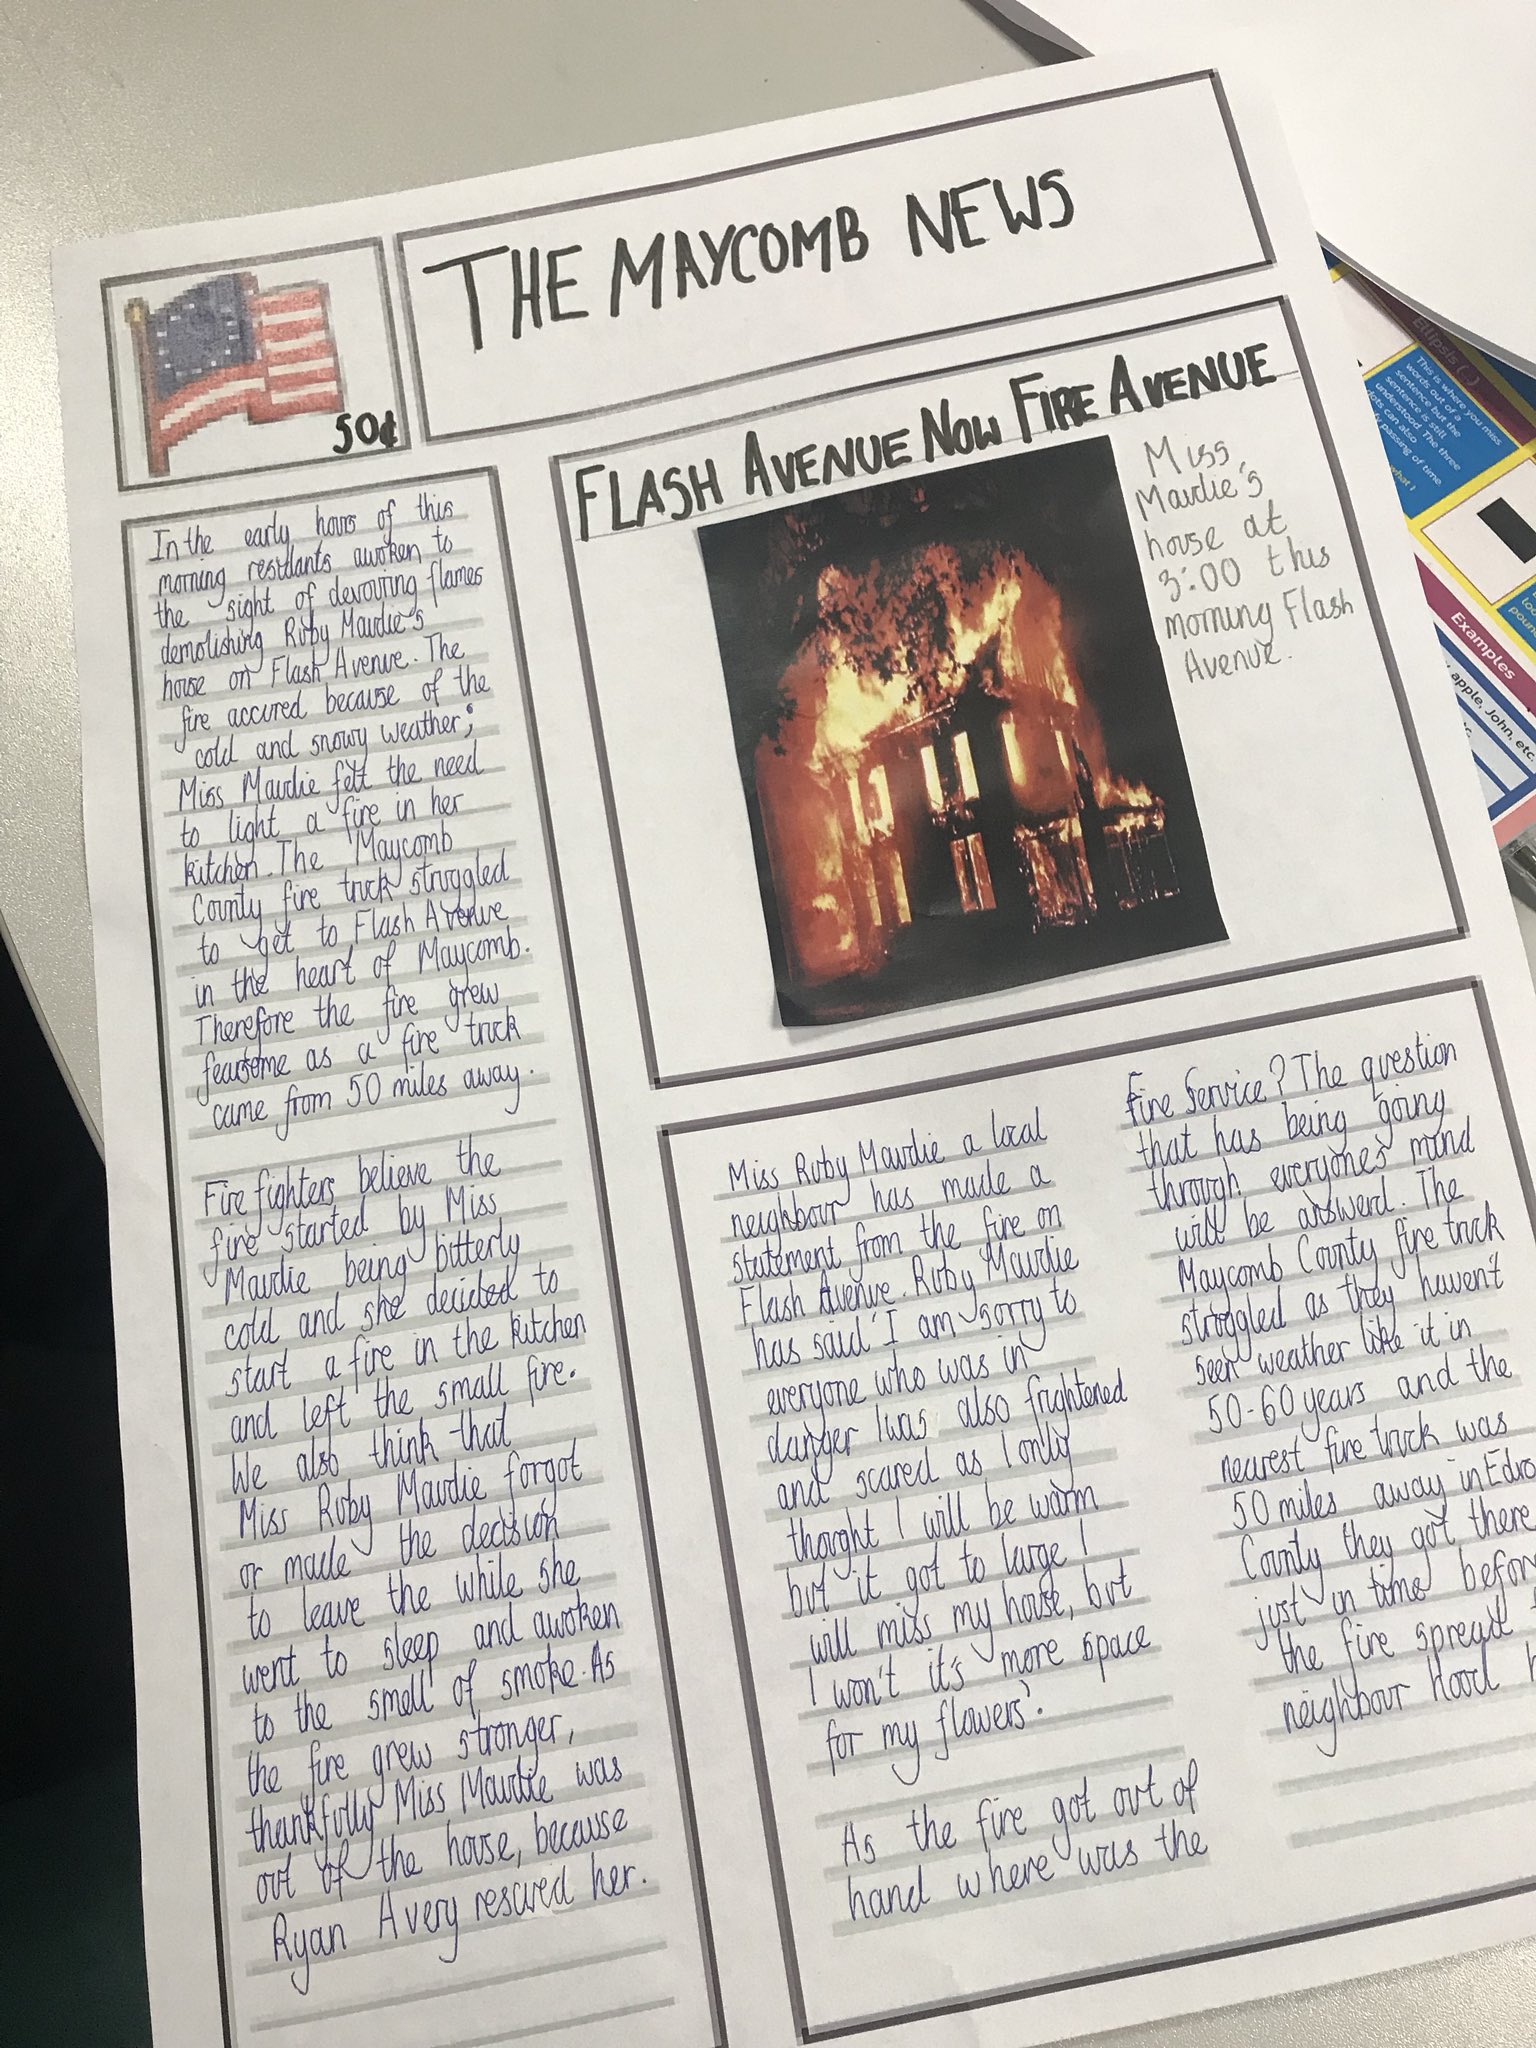 THE MAYCOMB NEWS
50¢
FLASH AVENUE NOW FIRE AVENUE
Miss
Maudie's
house at
3:00 this
morning Flash
Avenue.
In the early hours of this
morning residants awoken to
the sight of devouring flames
demolishing Ruby Maudie's
house on Flash Avenue. The
fire accured because of the
cold and snowy weather;
Miss Maudie felt the need
to light a fire in her
kitchen. The Maycomb
County fire truck struggled
to get to Flash Avenue
in the heart of Maycomb.
Therefore the fire grew
fearsome as a fire truck
came from 50 miles away.
Fire fighters believe the
fire started by Miss
Maudie being bitterly
cold and she decided to
start a fire in the kitchen
and left the small fire.
We also think that
Miss Ruby Maudie forgot
or made the decision
to leave the while she
went to sleep and awoken
to the smell of smoke. As
the fire grew stronger,
thankfully Miss Maudie was
out of the house, because
Ryan Avery rescued her.
Miss Ruby Maudie a local
neighbour has made a
statement from the fire on
Flash Avenue. Ruby Maudie
has said 'I am sorry to
everyone who was in
danger I was also frightened
and scared as I only
thought I will be warm
but it got to large I
will miss my house, but
I won't it's more space
for my flowers'.
As the fire got out of
hand where was the
Fire Service? The question
that has being going
through everyones mind
will be answerd. The
Maycomb County fire truck
struggled as they haven't
seen weather like it in
50-60 years and the
nearest fire truck was
50 miles away in
County they got there
just in time
the fire spread
neighbour hood
Ellipsis (...)
This is where you miss
words out of a
sentence but the
sentence is still
understood. The three
dots can also
passing of time
what!
Examples
apple, John, etc.